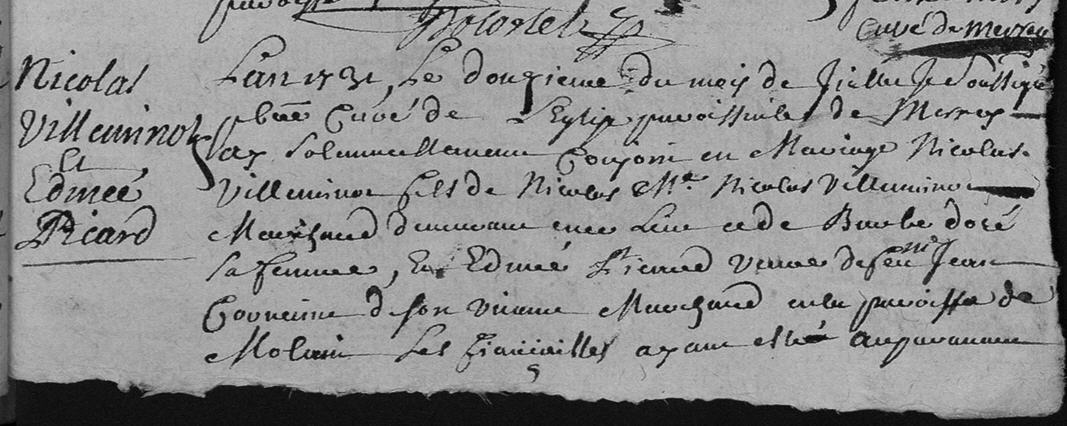 Curé de Merrey
Nicolas
Villeminot
Et
Edmée
Picard
L'an 1731, Le douzieme du mois de Juillet Je Soussigné
pbre Curé de L'Eglise paroissiale de Merrey
ay solemnellement Conjoint en Mariage Nicolas
Villeminot fils de Nicolas Me. Nicolas Villeminot
Marchand demeurant en ce Lieu et de Barbe doré
sa femme, Et Edmée Picard veuve de feu Jean
de son vivant Marchand en la paroisse de
Molain Les fiancailles ayant esté auparavant